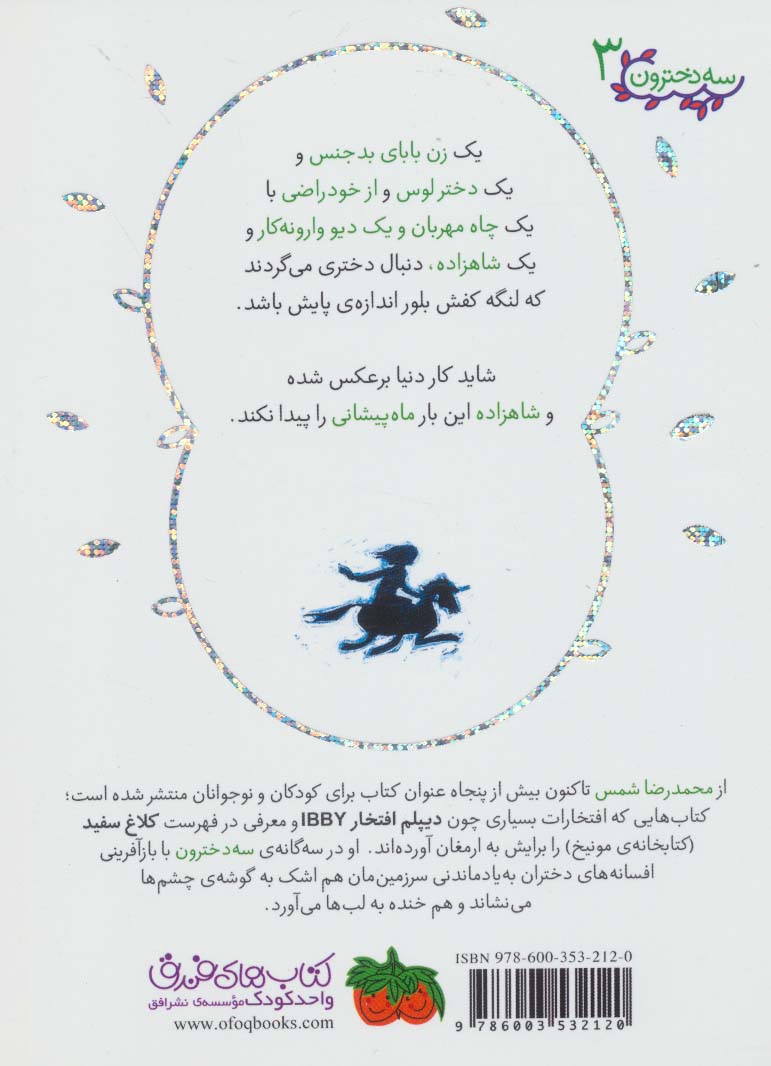 سه‌دخترون ۳
یک زن بابای بدجنس و
یک دختر لوس و از خودراضی با
یک چاه مهربان و یک دیو وارونه‌کار و
یک شاهزاده، دنبال دختری می‌گردند
که لنگه کفش بلور اندازه‌ی پایش باشد.
شاید کار دنیا برعکس شده
و شاهزاده این بار ماه‌پیشانی را پیدا نکند.
از محمدرضا شمس تاکنون بیش از پنجاه عنوان کتاب برای کودکان و نوجوانان منتشر شده است؛
کتاب‌هایی که افتخارات بسیاری چون دیپلم افتخار IBBY و معرفی در فهرست کلاغ سفید
(کتابخانه‌ی مونیخ) را برایش به ارمغان آورده‌اند. او در سه‌گانه‌ی سه‌دخترون با بازآفرینی
افسانه‌های دختران به‌یادماندنی سرزمین‌مان هم اشک به گوشه‌ی چشم‌ها
می‌نشاند و هم خنده به لب‌ها می‌آورد.
ISBN 978-600-353-212-0
9 786003 532120
کتاب‌های فندق
واحد کودک مؤسسه‌ی نشر افق
www.ofoqbooks.com